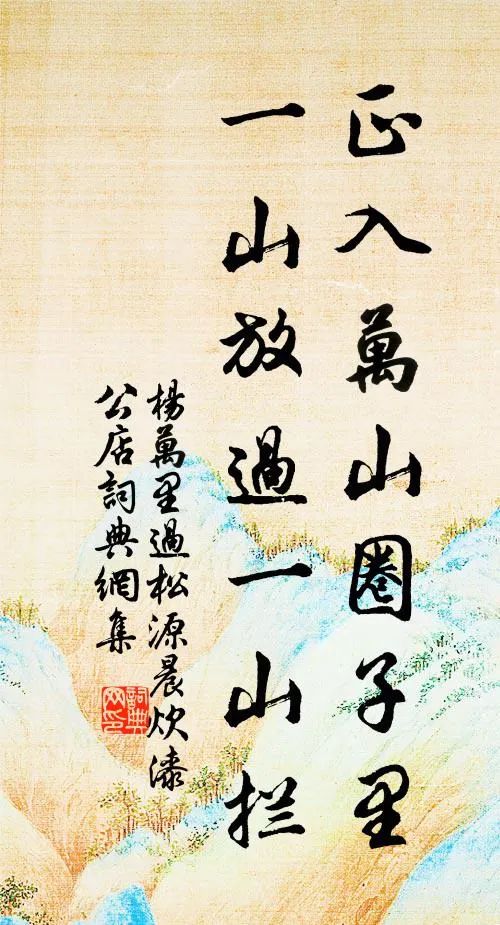 正入萬山圈子里
一山放過一山拦
楊萬里過松源晨炊漆
公店詞典網集
詞典网印